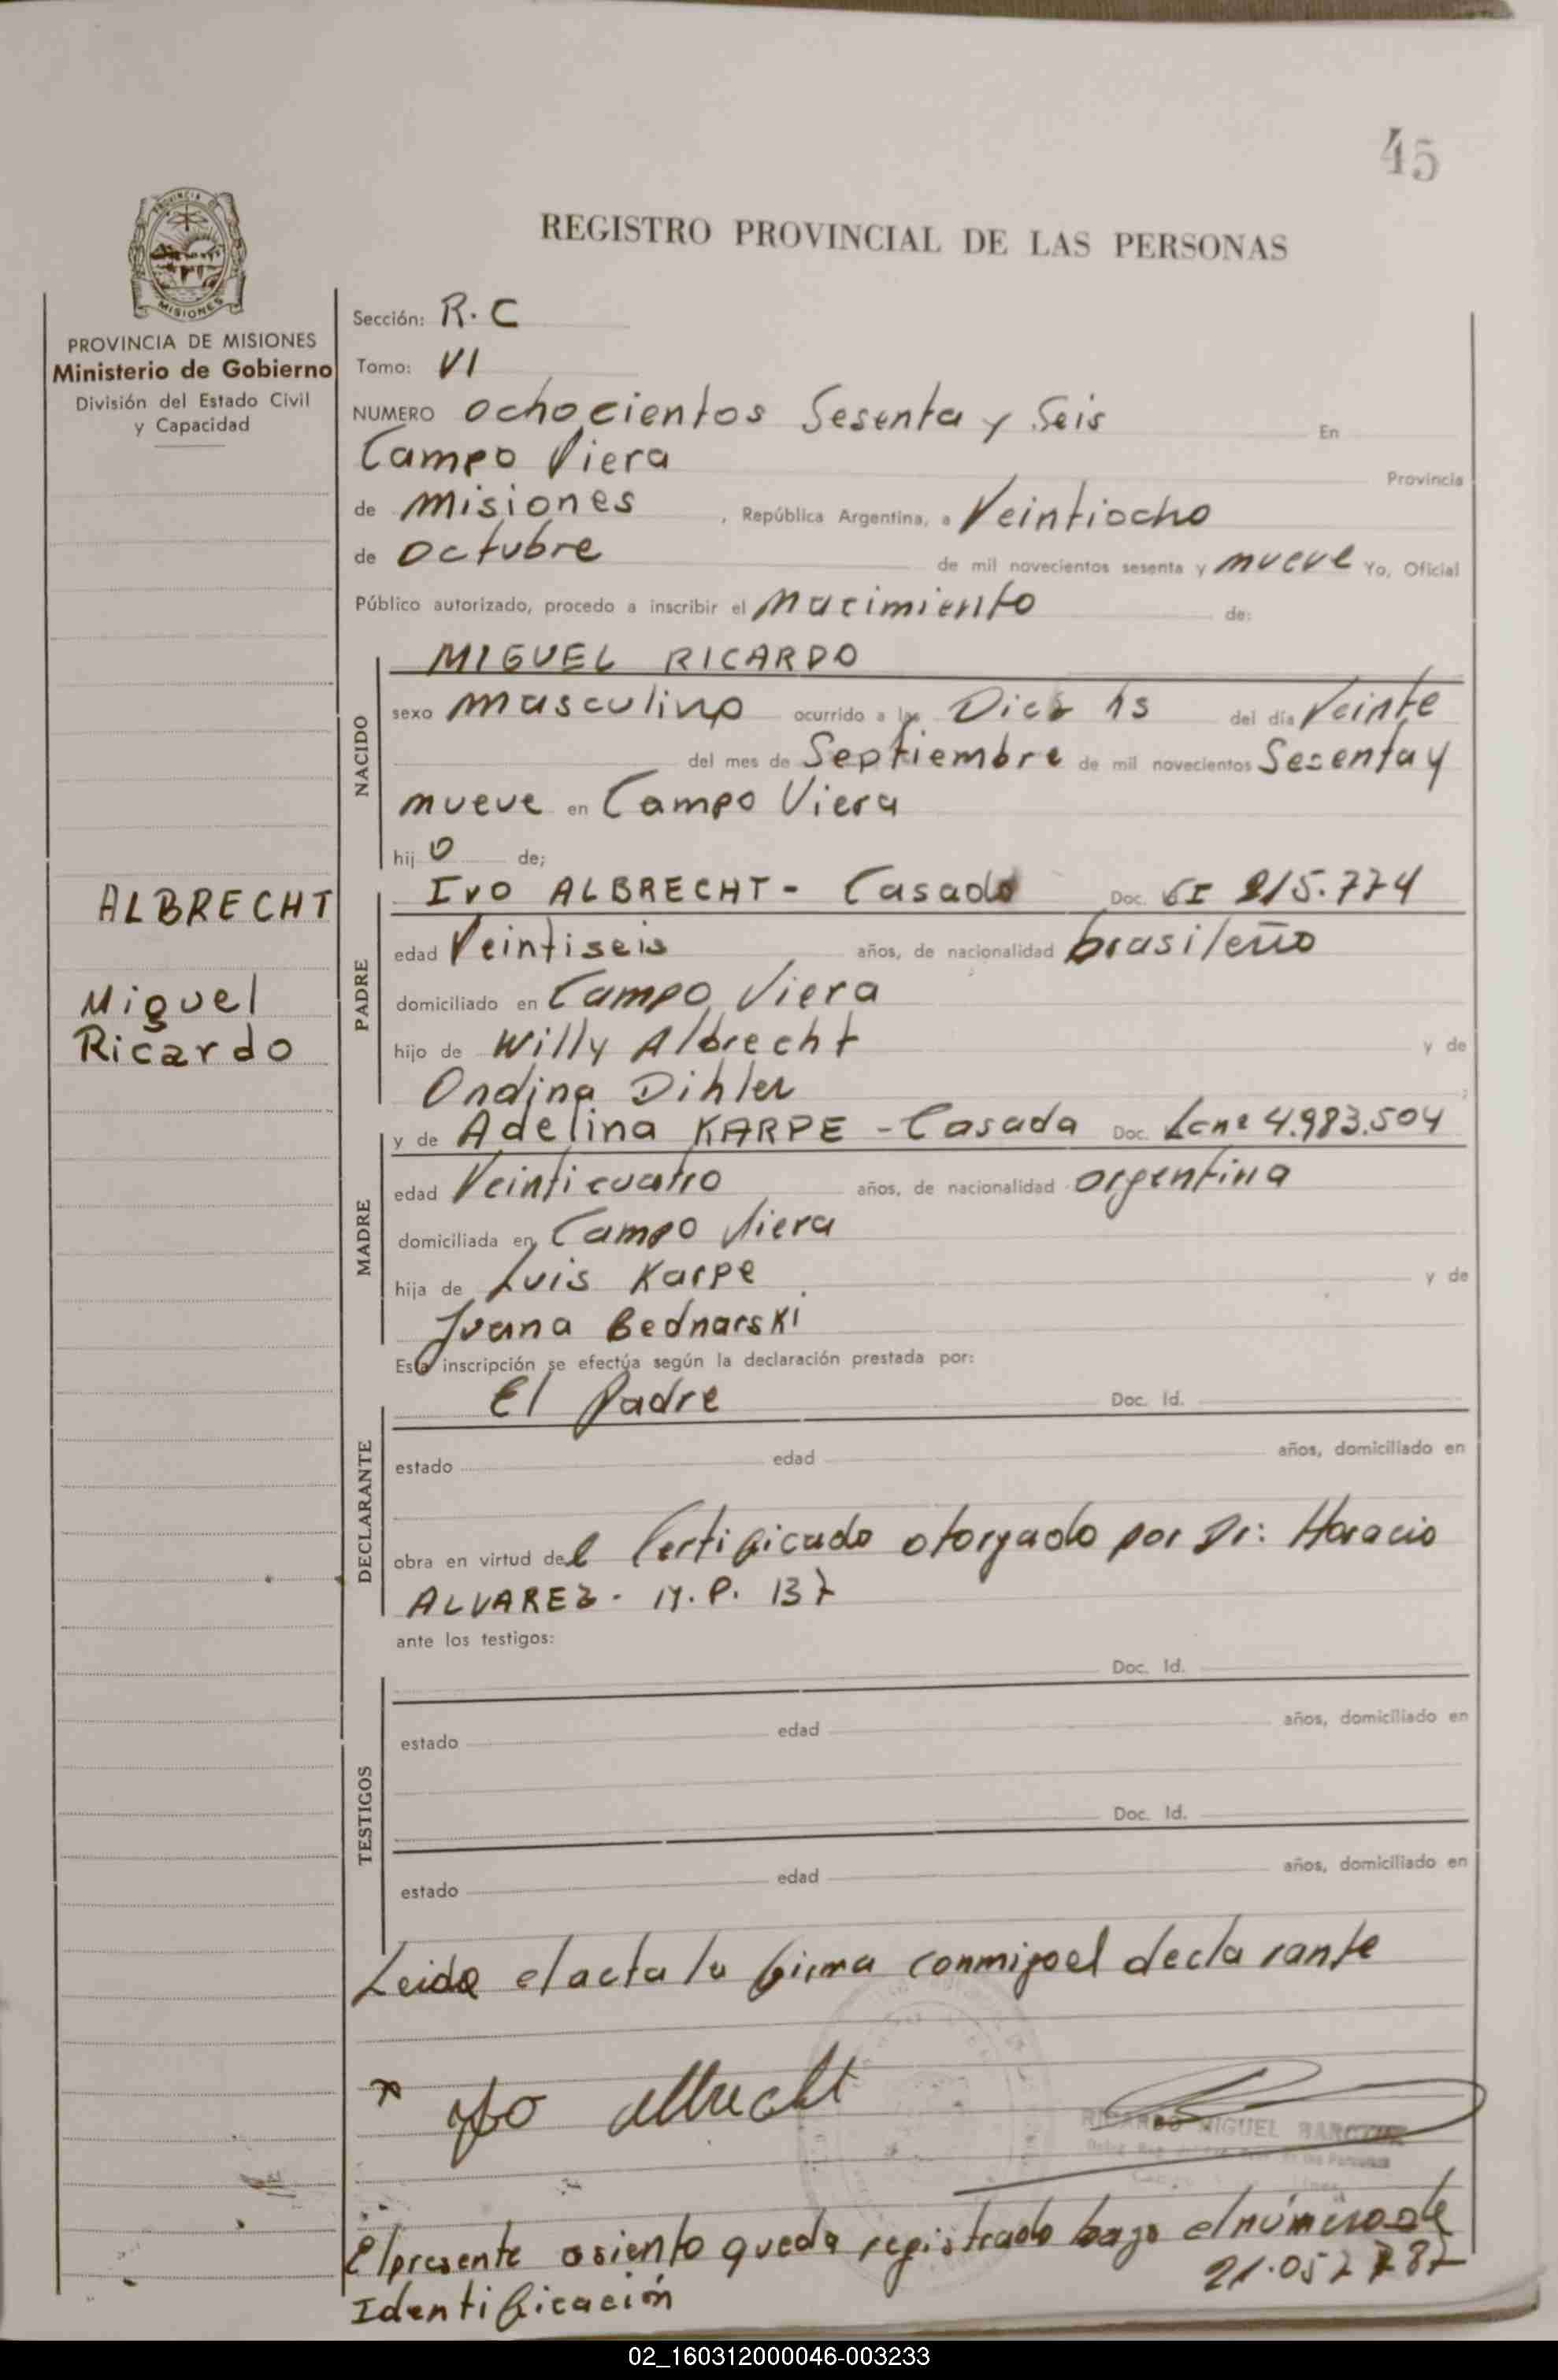 45
REGISTRO PROVINCIAL DE LAS PERSONAS
PROVINCIA DE MISIONES
Ministerio de Gobierno
División del Estado Civil
y Capacidad
Sección: R.C
Tomo: VI
NUMERO ochocientos Sesenta y Seis En
Campo Viera Provincia
de misiones, República Argentina, a Veintiocho
de octubre de mil novecientos sesenta y mueve Yo, Oficial
Público autorizado, procedo a inscribir el nacimiento de:
NACIDO
MIGUEL RICARDO
sexo masculino ocurrido a las Diez hs del día Veinte
del mes de Septiembre de mil novecientos Sesenta y
mueve en Campo Viera
hijo de;
ALBRECHT
Miguel
Ricardo
PADRE
Ivo ALBRECHT - Casado Doc. CI 215.774
edad Veintiseis años, de nacionalidad brasileño
domiciliado en Campo Viera
hijo de Willy Albrecht y de
Ondina Dihler
MADRE
y de Adelina KARPE - Casada Doc. 4.983.504
edad Veinticuatro años, de nacionalidad argentina
domiciliada en Campo Viera
hija de Luis Karpe y de
Juana Bednarski
Esta inscripción se efectúa según la declaración prestada por:
DECLARANTE
El Padre Doc. Id.
estado edad años, domiciliado en
obra en virtud del Certificado otorgado por Dr: Horacio
ALVAREZ - M.P. 137
ante los testigos:
TESTIGOS
Doc. Id.
estado edad años, domiciliado en
Doc. Id.
estado edad años, domiciliado en
Leida el acta la firma conmigo el declarante
Ivo Albrecht
RICARDO MIGUEL
El presente asiento queda registrado bajo el número de
Identificación 21.052.787
02_160312000046-003233